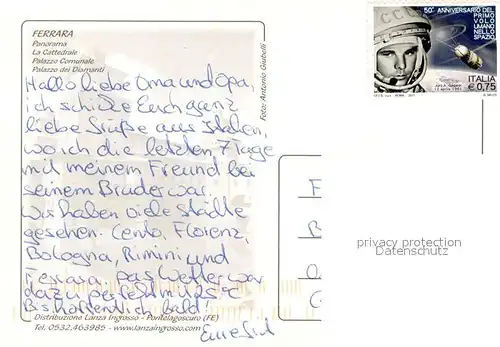 FERRARA
Panorama
La Cattedrale
Palazzo Comunale
Palazzo dei Diamanti
Foto: Antonio Giubelli
Hallo liebe Oma und Opa,
ich schicke Euch ganz
liebe Grüße aus Italien,
wo ich die letzten 7 Tage
mit meinem Freund bei
seinem Bruder war.
Wir haben viele Städte
gesehen. Cento, Florenz,
Bologna, Rimini und
Ferrara. Das Wetter war
dazu perfekt
Bis hoffentlich bald!
Eure
Distribuzione Lanza Ingrosso - Pontelagoscuro (FE)
Tel. 0532.463985 - www.lanzaingrosso.com
50° ANNIVERSARIO DEL
PRIMO VOLO
UMANO NELLO
SPAZIO
CCCP
ITALIA
€ 0,75
privacy protection
Datenschutz